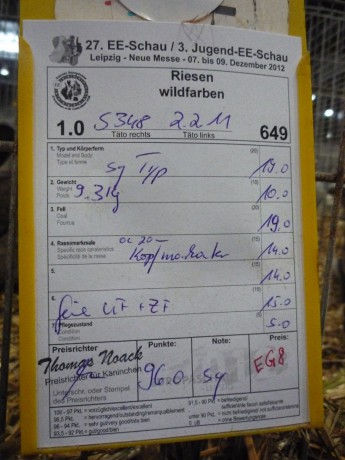 27. EE-Schau / 3. Jugend-EE-Schau
Leipzig - Neue Messe - 07. bis 09. Dezember 2012
Riesen
wildfarben
1.0 S348 2.2.11 649
Täto rechts Täto links
1. Typ und Körperform (20)
Model and body
Type et
sg Typ 19.0
2. Gewicht (10)
Weight
Poids
9.3 10.0
3. Fell (20)
Coat
Fourrure
19.0
4. Rassemerkmale (15)
14.0
5. (15)
14.0
6. (15)
feine 15.0
7. Pflegezustand (5)
Condition
Condition
5.0
Preisrichter Punkte: Note: Preis:
Thomas Noack
Preisrichter für Kaninchen
96.0 sg EG8
Unterschr. oder Stempel
des Preisrichters